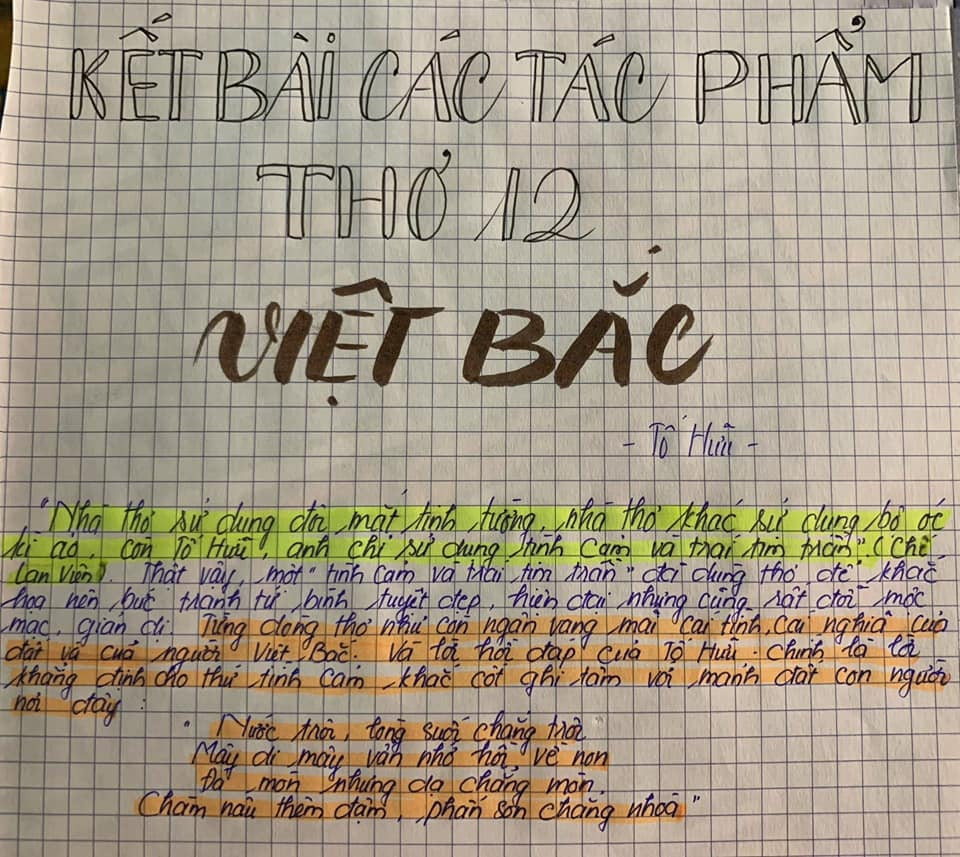 KẾT BÀI CÁC TÁC PHẨM
THƠ 12
VIỆT BẮC
- Tố Hữu -
"Nhà thơ sử dụng đôi mắt tinh tường, nhà thơ khác sử dụng bộ óc
kì ảo, còn Tố Hữu, anh chỉ sử dụng tình cảm và trái tim trần" (Chế
Lan Viên). Thật vậy, một "tình cảm và trái tim trần" đã dùng thơ để khắc
họa nên bức tranh tứ bình tuyệt đẹp, hiện đại nhưng cũng rất đỗi mộc
mạc, giản dị. Từng dòng thơ như còn ngân vang mãi cái tình, cái nghĩa của
đất và của người Việt Bắc. Và lời hồi đáp của Tố Hữu chính là lời
khẳng định cho thứ tình cảm khắc cốt ghi tâm với mảnh đất con người
nơi đây :
" Nước trôi, lòng suối chẳng trôi
Mây đi mây vẫn nhớ hồi về non
Đá mòn nhưng dạ chẳng mòn
Chàm nâu thêm đậm, phấn son chẳng nhoà "